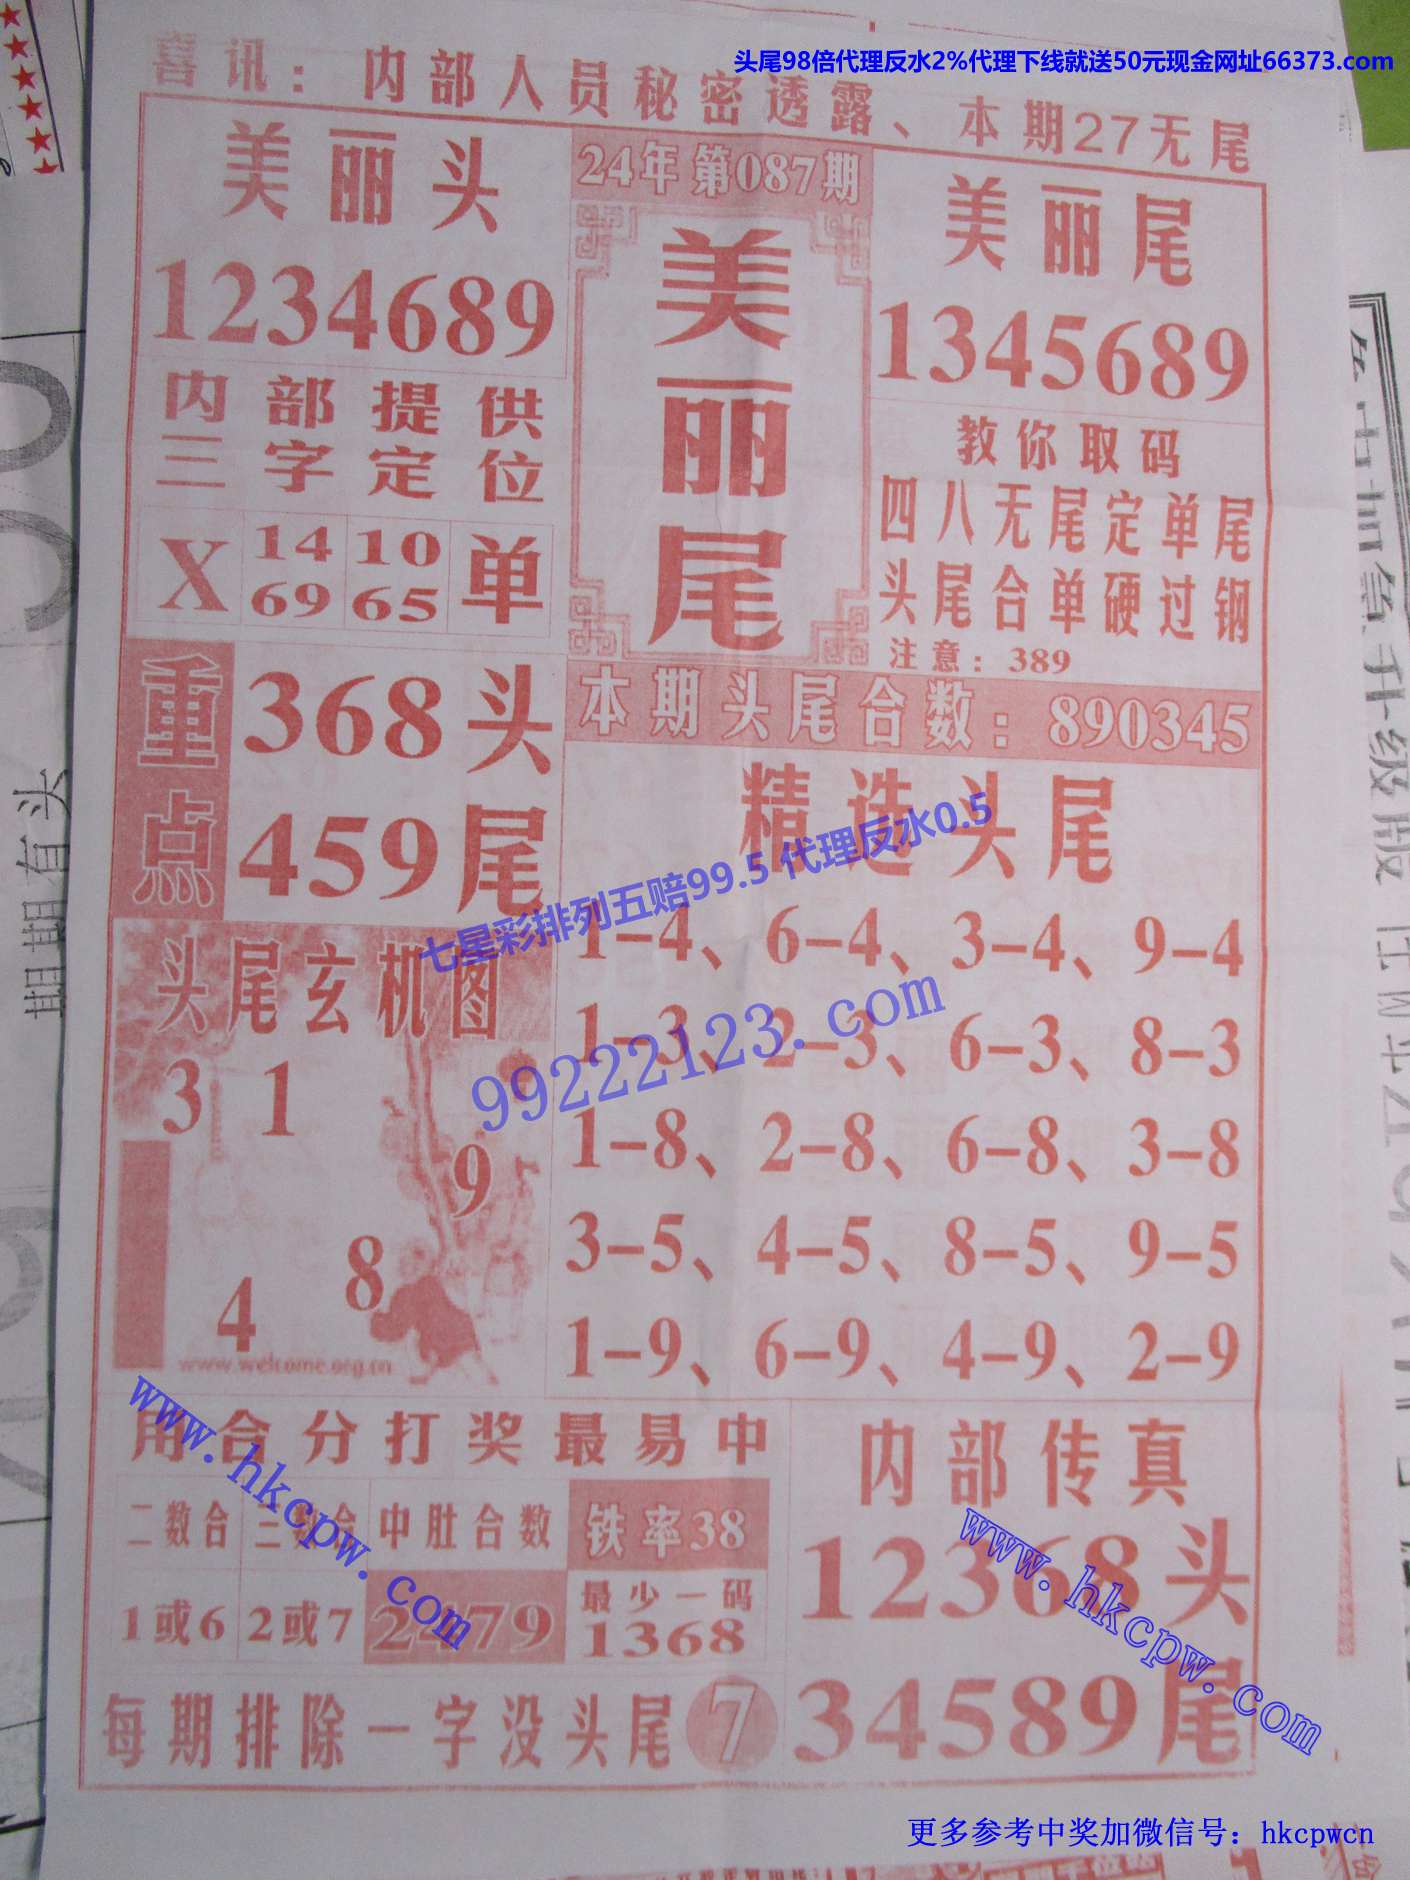 头尾98倍代理反水2%代理下线就送50元现金网址66373.com
喜讯：内部人员秘密透露、本期27无尾
美丽头
1234689
24年第087期
美丽尾
美丽尾
1345689
内部提供
三字定位
X 14 10 单
69 65
教你取码
四八无尾定单尾
头尾合单硬过钢
注意：389
重点
368头
459尾
本期头尾合数：890345
精选头尾
七星彩排列五赔99.5 代理反水0.5
1-4、6-4、3-4、9-4
1-3、2-3、6-3、8-3
1-8、2-8、6-8、3-8
3-5、4-5、8-5、9-5
1-9、6-9、4-9、2-9
99222123.com
头尾玄机图
3 1
9
8
4
www.welcome.org.cn
用合分打奖最易中
二数合 三数合 中肚合数 铁率38
1或6 2或7 2479 最少一码
1368
www.hkcpw.com
每期排除一字没头尾 7
内部传真
12368头
34589尾
www.hkcpw.com
期期有头
更多参考中奖加微信号：hkcpwcn